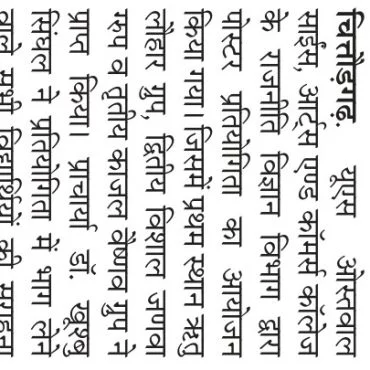 चित्तौड़गढ़. यूएस ओस्तवाल
साईंस, आर्ट्स एण्ड कॉमर्स कॉलेज
के राजनीति विज्ञान विभाग द्वारा
पोस्टर प्रतियोगिता का आयोजन
किया गया। जिसमें प्रथम स्थान ऋतु
लौहार ग्रुप, द्वितीय विशाल जणवा
ग्रुप व तृतीय काजल वैष्णव ग्रुप ने
प्राप्त किया। प्राचार्या डॉ. खूशबु
सिंघल ने प्रतियोगिता में भाग लेने
वाले सभी विद्यार्थियों की सराहना